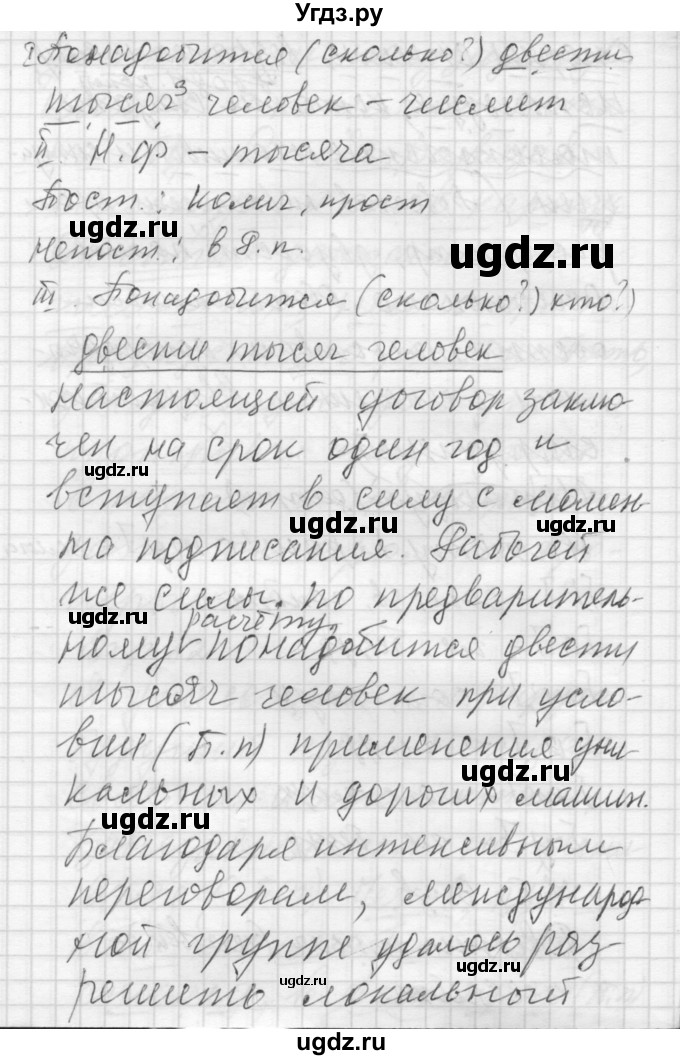 Угдз.ру
I Понадобится (сколько?) двести
тысяч³ человек – числит
II Н.ф – тысяча
Пост.: Колич, прост
Непост.: в Р.п.
III. Понадобится (сколько?) кто?)
двести тысяч человек
Настоящий договор заклю-
чен на срок один год и
вступает в силу с момен-
та подписания. Рабочей
же силы по предваритель-
расчёту,
ному понадобится двести
тысяч человек при усло-
вии (П.п) применения уни-
кальных и дорогих машин.
Благодаря интенсивным
переговорам, международ-
ной группе удалось раз-
решить локальный
ugdz.ru
ugdz.ru
ugdz.ru
ugdz.ru
ugdz.ru
ugdz.ru
ugdz.ru
ugdz.ru
ugdz.ru
ugdz.ru
ugdz.ru
ugdz.ru
ugdz.ru